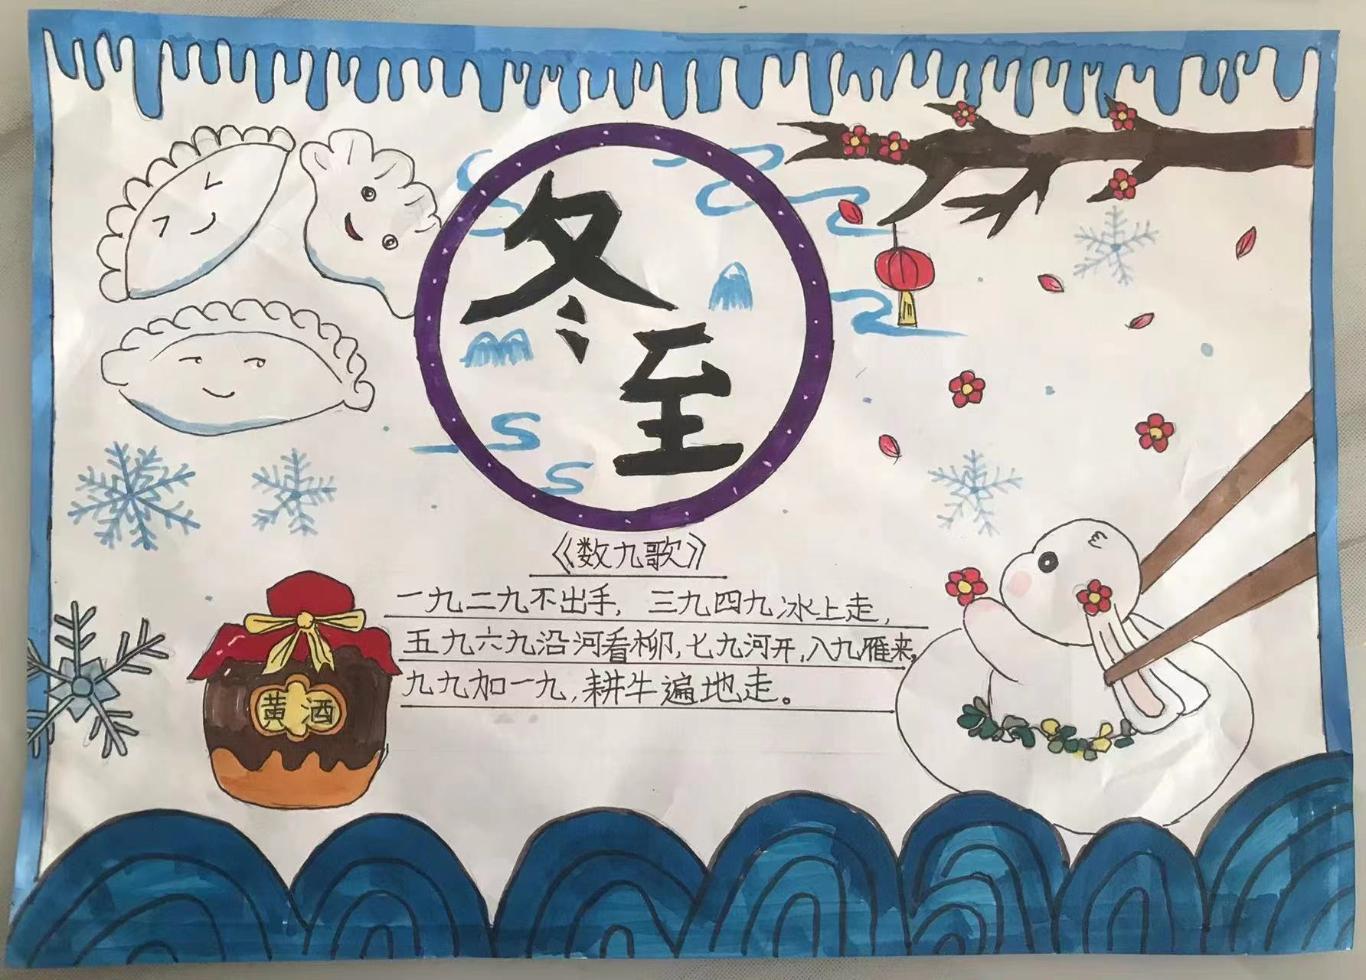 冬至
《数九歌》
一九二九不出手，三九四九冰上走，
五九六九沿河看柳，七九河开，八九雁来，
九九加一九，耕牛遍地走。
黄酒